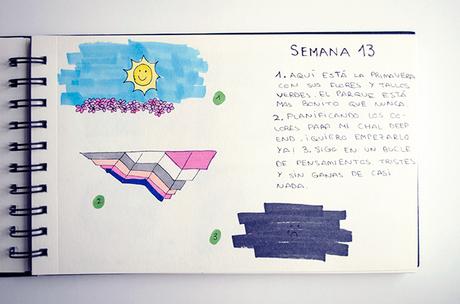 SEMANA 13
1. AQUÍ ESTÁ LA PRIMAVERA
CON SUS FLORES Y TALLOS
VERDES. EL PARQUE ESTÁ
MAS BONITO QUE NUNCA.
2. PLANIFICANDO LOS CO-
LORES PARA MI CHAL DEEP
END. ¡QUIERO EMPEZARLO
YA! 3. SIGO EN UN BUCLE
DE PENSAMIENTOS TRISTES
Y SIN GANAS DE CASI
NADA.
1
2
3